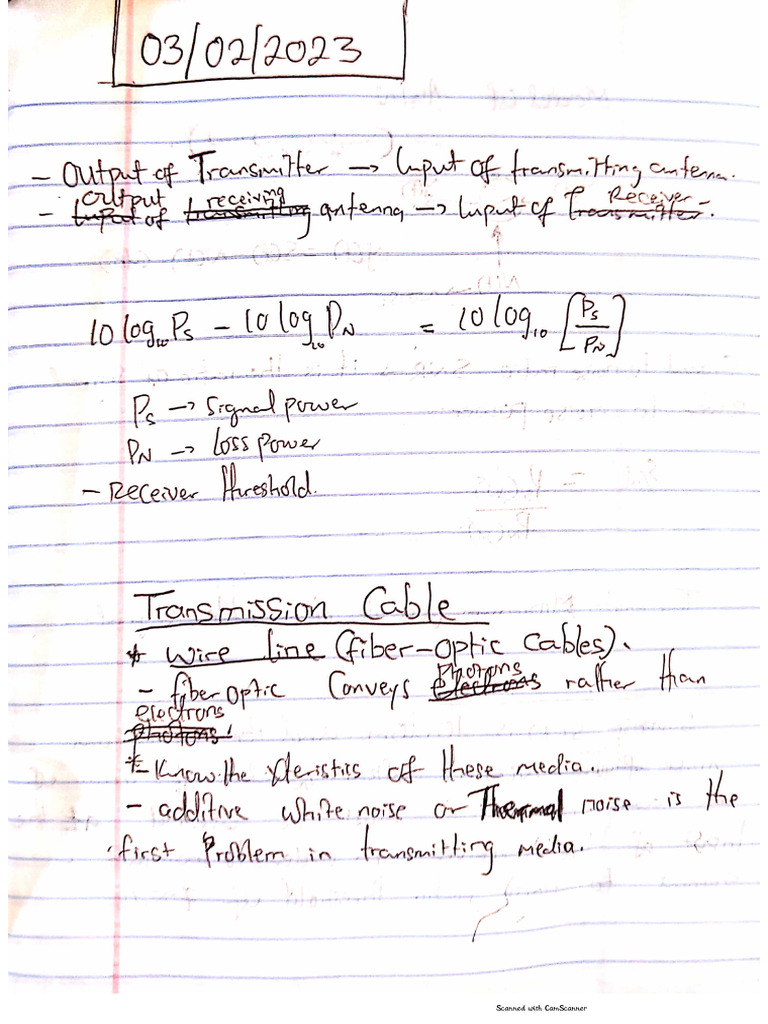 03/02/2023
- Output of Transmitter → Input of transmitting antenna.
- Output of receiving antenna → Input of Receiver.
10 log₁₀ Ps - 10 log₁₀ PN = 10 log₁₀ [Ps/PN]
Ps → Signal power
PN → Loss power
- Receiver threshold.
Transmission Cable
* Wire line (fiber-optic cables).
- fiber optic Conveys Photons rather than
electrons
*- Know the xteristics of these media.
- additive white noise or Thermal noise is the
first Problem in transmitting media.
Scanned with CamScanner